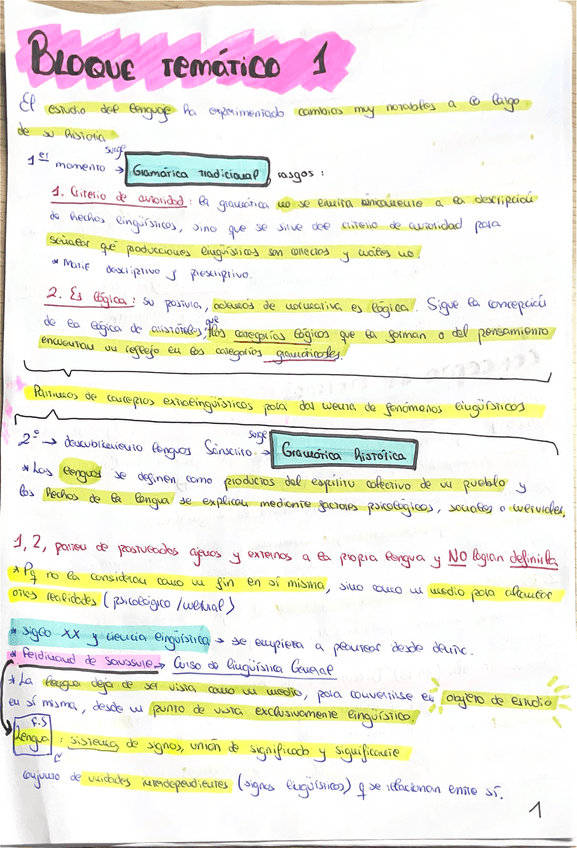 BLOQUE TEMÁTICO 1
El estudio del lenguaje ha experimentado cambios muy notables a lo largo
de su historia
surge
1er momento → Gramática Tradicional, rasgos:
1. Criterio de autoridad: la gramática no se limita únicamente a la descripción
de hechos lingüísticos, sino que se sirve del criterio de autoridad para
señalar qué producciones lingüísticas son correctas y cuáles no.
* Matiz descriptivo y prescriptivo.
2. Es lógica: su postura, además de normativa es lógica. Sigue la concepción
que
de la lógica de Aristóteles, las categorías lógicas que la forman o del pensamiento
encuentran un reflejo en las categorías gramaticales.
Partimos de conceptos extralingüísticos para dar cuenta de fenómenos lingüísticos
surge
2º → descubrimiento lenguas Sánscrito → Gramática histórica
* Las lenguas se definen como productos del espíritu colectivo de un pueblo y
los hechos de la lengua se explican mediante factores psicológicos, sociales o culturales.
1, 2, parten de postulados ajenos y externos a la propia lengua y NO logran definirla
* Pq no la consideran como un fin en sí misma, sino como un medio para alcanzar
otras realidades (psicológico/cultural)
* siglo XX y ciencia lingüística → se empieza a pensar desde dentro.
* Ferdinand de Saussure → Curso de lingüística General
* La lengua deja de ser vista como un medio, para convertirse en objeto de estudio
en sí misma, desde un punto de vista exclusivamente lingüístico.
F.S
Lengua: sistema de signos, unión de significado y significante
conjunto de unidades interdependientes (signos lingüísticos) q se relacionan entre sí.
1